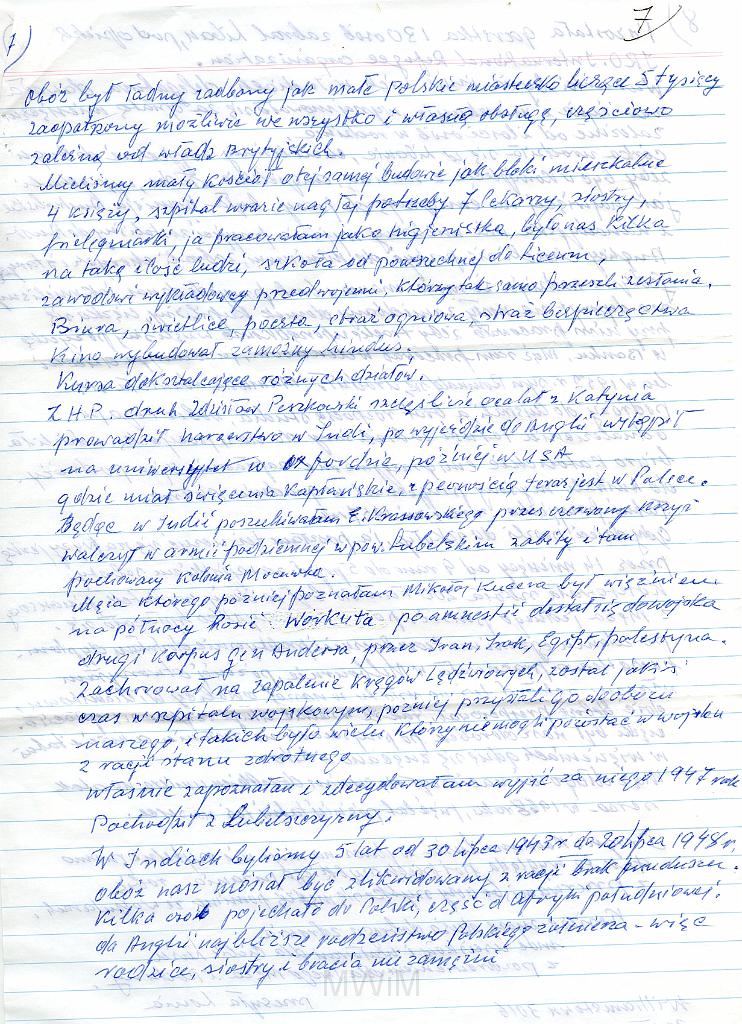 7
7)
Obóz był ładny zadbany jak małe Polskie miasteczko liczące 5 tysięcy
zaopatrzony możliwie we wszystko i własną obsługę, częściowo
zależną od władz Brytyjskich.
Mieliśmy mały Kościół o tej samej budowie jak bloki mieszkalne
4 księży, szpital wrazie nagłej potrzeby 7 lekarzy, siostry,
pielęgniarki, ja pracowałam jako higienistka, było nas kilka
na taką ilość ludzi, szkoła od powszechnej do liceum,
zawodowi wykładowcy przedwojenni, którzy tak samo przeszli zesłania.
Biura, świetlice, poczta, straż ogniowa, straż bezpieczeństwa
Kino wybudował zamożny hindus.
Kursa dokształcające różnych działów.
Z.H.P. druh Zdzisław Peszkowski szczęśliwie ocalał z Katynia
prowadził harcerstwo w Indii, po wyjeździe do Anglii wstąpił
na uniwersytet w oxfordzie, później w USA
gdzie miał święcenia Kapłańskie, z pewnością teraz jest w Polsce.
Będąc w Indii poszukiwałam E. Krassowskiego przez czerwony krzyż
walczył w armii podziemnej w pow. Lubelskim zabity i tam
pochowany Kolonia
Męża którego później poznałam Mikołaj Kucera był więźniem
na północy Rosii Workuta po amnestii dostał się do wojska
drugi Korpus gen Andersa, przez Iran, Irak, Egipt, palestyna.
Zachorował na zapalenie kręgów Lędźwiowych, został jakiś
czas w szpitalu wojskowym, później przysłali go do obozu
naszego, i takich było wielu którzy nie mogli pozostać w wojsku
z racji stanu zdrotnego
właśnie zapoznałam i zdecydowałam wyjść za niego 1947 rok
Pochodził z Lubelszczyzny.
W Indiach byliśmy 5 lat od 30 lipca 1943 r. do 20 lipca 1948 r.
obóz nasz mósiał być zlikwidowany z racji brak funduszu.
Kilka osób pojechało do Polski, część d Afryki południowej.
do Anglii najbliższe rodzeństwo Polskiego żołnierza – więc
rodzice, siostry i bracia nie zamężni
MWiM